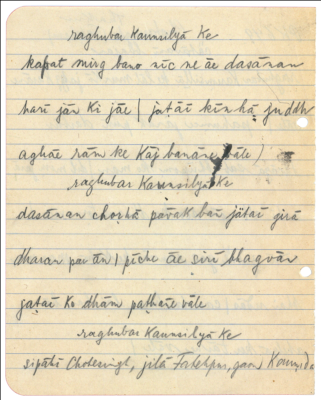 raghubar Kaunsilyā Ke
kapat mirg bano nīc ne āe dasānan
harī jān Ki jāe | jaṭāī kīnhā juddh
aghāe rām ke Kāj banāne vāle )
raghubar Kaunsilyā Ke
dasānan choṛhā pāvak bān jātāī girā
dharan par ān | pīche āe sirī bhagvān
jaṭāī Ko dhām paṭhāne vāle
raghubar Kaunsilyā Ke
sipāhī Chotesingh, jilā Fatehpur, gaon